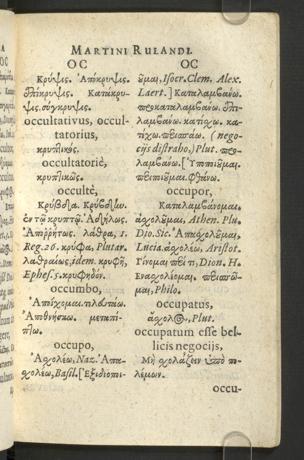 MARTINI RULANDI.
OC
Κρύψις. Ἀπόκρυψις.
ἐπίκρυψις. Κατάκρυ-
ψις. σύγκρυψις.
occultativus, occul-
tatorius,
κρυπτικός.
occultatoriè,
κρυπτικῶς.
occultè,
Κρύβδα. Κρύβδην.
ἐν τῷ κρυπτῷ. Ἀδήλως.
Ἀπορρήτως. λάθρα, 1.
Reg. 26. κρύφα, Plutar.
λαθραίως, idem. κρυφῆ,
Ephes. 5. κρυφηδόν.
occumbo,
Ἀποίχομαι. τελευτάω.
Ἀποθνήσκω. μεταπί-
πτω.
occupo,
Ἀσχολέω, Naz. Ἀπα-
σχολέω, Basil. [Ἐξιδιοποι-
OC
οῦμαι, Isocr. Clem. Alex.
Laert.] Καταλαμβάνω.
προκαταλαμβάνω. ἐπι-
λαμβάνω. κατέχω. κα-
τίχω. περισπάω. (nego-
cijs distraho,) Plut. προ-
λαμβάνω. [Ὑποποιοῦμαι.
περιποιοῦμαι. Φθάνω.
occupor,
Καταλαμβάνομαι.
ἀσχολοῦμαι, Athen. Plu.
Dio. Sic. Ἀπασχολοῦμαι,
Lucia. ἀσχολέω, Aristot.
Γίνομαι περί τι, Dion. H.
Ἐνασχολέομαι. περισπῶ-
μαι, Philo.
occupatus,
ἄσχολος, Plut.
occupatum esse bel-
licis negocijs,
Μὴ σχολάζειν ὑπὸ πο-
λέμων.
occu-